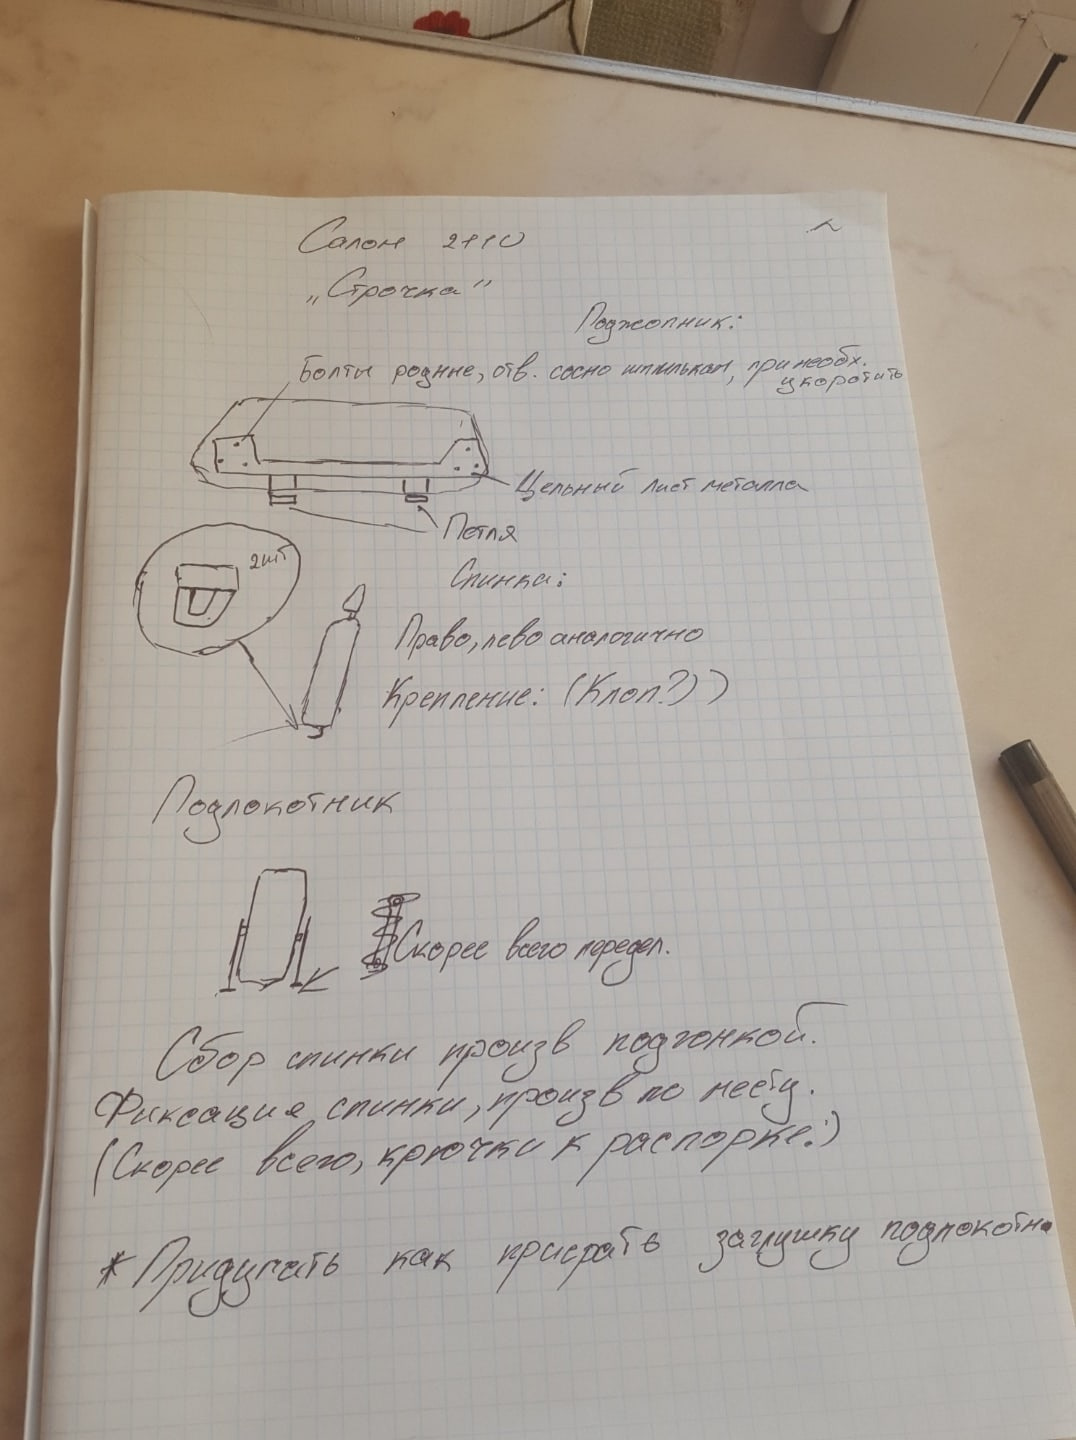 Салон 2110
„Строчка"
Поджопник:
Болты родные, отв. сосно шпилькам, при необх.
укоротить
Цельный лист металла
Петля
2шт
Спинка:
Право, лево аналогично
Крепление: (Клоп?))
Подлокотник
Скорее всего передел.
Сбор спинки произв подгонкой.
Фиксация спинки, произв по месту.
(Скорее всего, крючки к распорке.)
* Придумать как присрать заглушку подлокотн